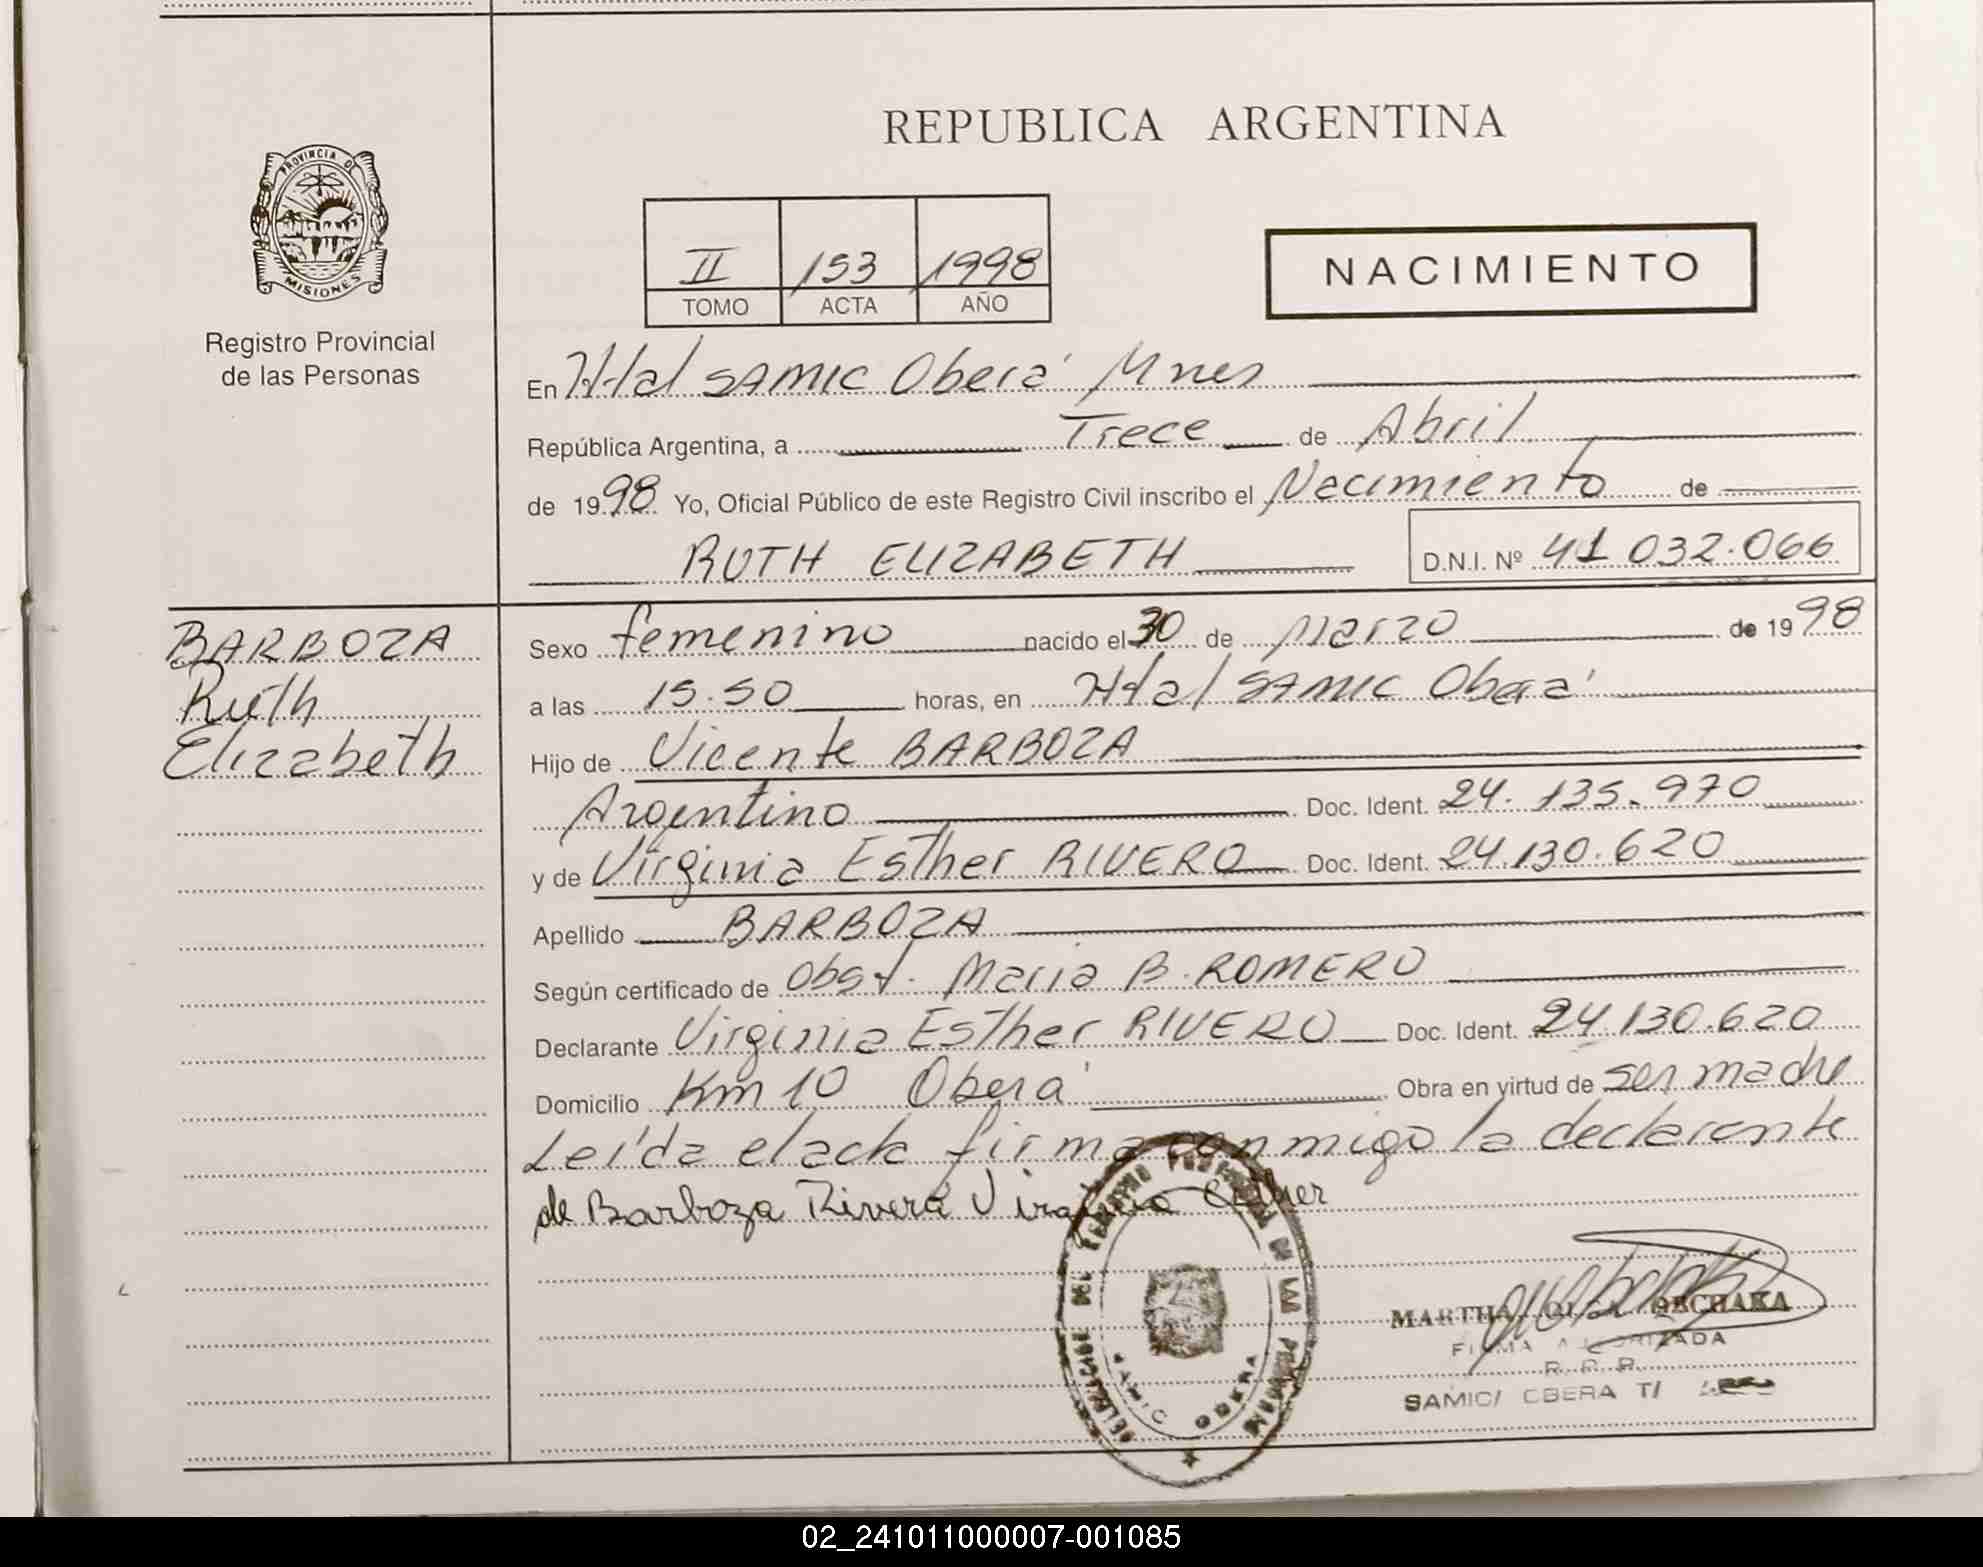 REPUBLICA ARGENTINA
PROVINCIA DE
MISIONES
Registro Provincial
de las Personas
II 153 1998
TOMO ACTA AÑO
NACIMIENTO
En Htal SAMIC Oberá Mnes
República Argentina, a Trece de Abril
de 1998 Yo, Oficial Público de este Registro Civil inscribo el Nacimiento de
RUTH ELIZABETH D.N.I. Nº 41 032.066
BARBOZA
Ruth
Elizabeth
Sexo femenino nacido el 30 de Marzo de 1998
a las 15.50 horas, en Htal SAMIC Oberá
Hijo de Vicente BARBOZA
Argentino Doc. Ident. 24.135.970
y de Virginia Esther RIVERO Doc. Ident. 24.130.620
Apellido BARBOZA
Según certificado de Obst. Maria B. ROMERO
Declarante Virginia Esther RIVERO Doc. Ident. 24.130.620
Domicilio Km 10 Oberá Obra en virtud de ser madre
Leída el acta firma conmigo la declarante
de Barboza Rivera Virginia Esther
DELEGACION DEL REGISTRO PROVINCIAL DE LAS PERSONAS
SAMIC OBERA
MARTHA OLGA
FIRMA AUTORIZADA
R. P. P.
SAMIC/ OBERA T/
02_241011000007-001085